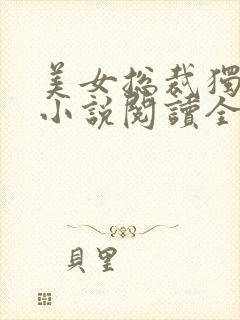 美女总裁獨
小說閱讀全
貝里